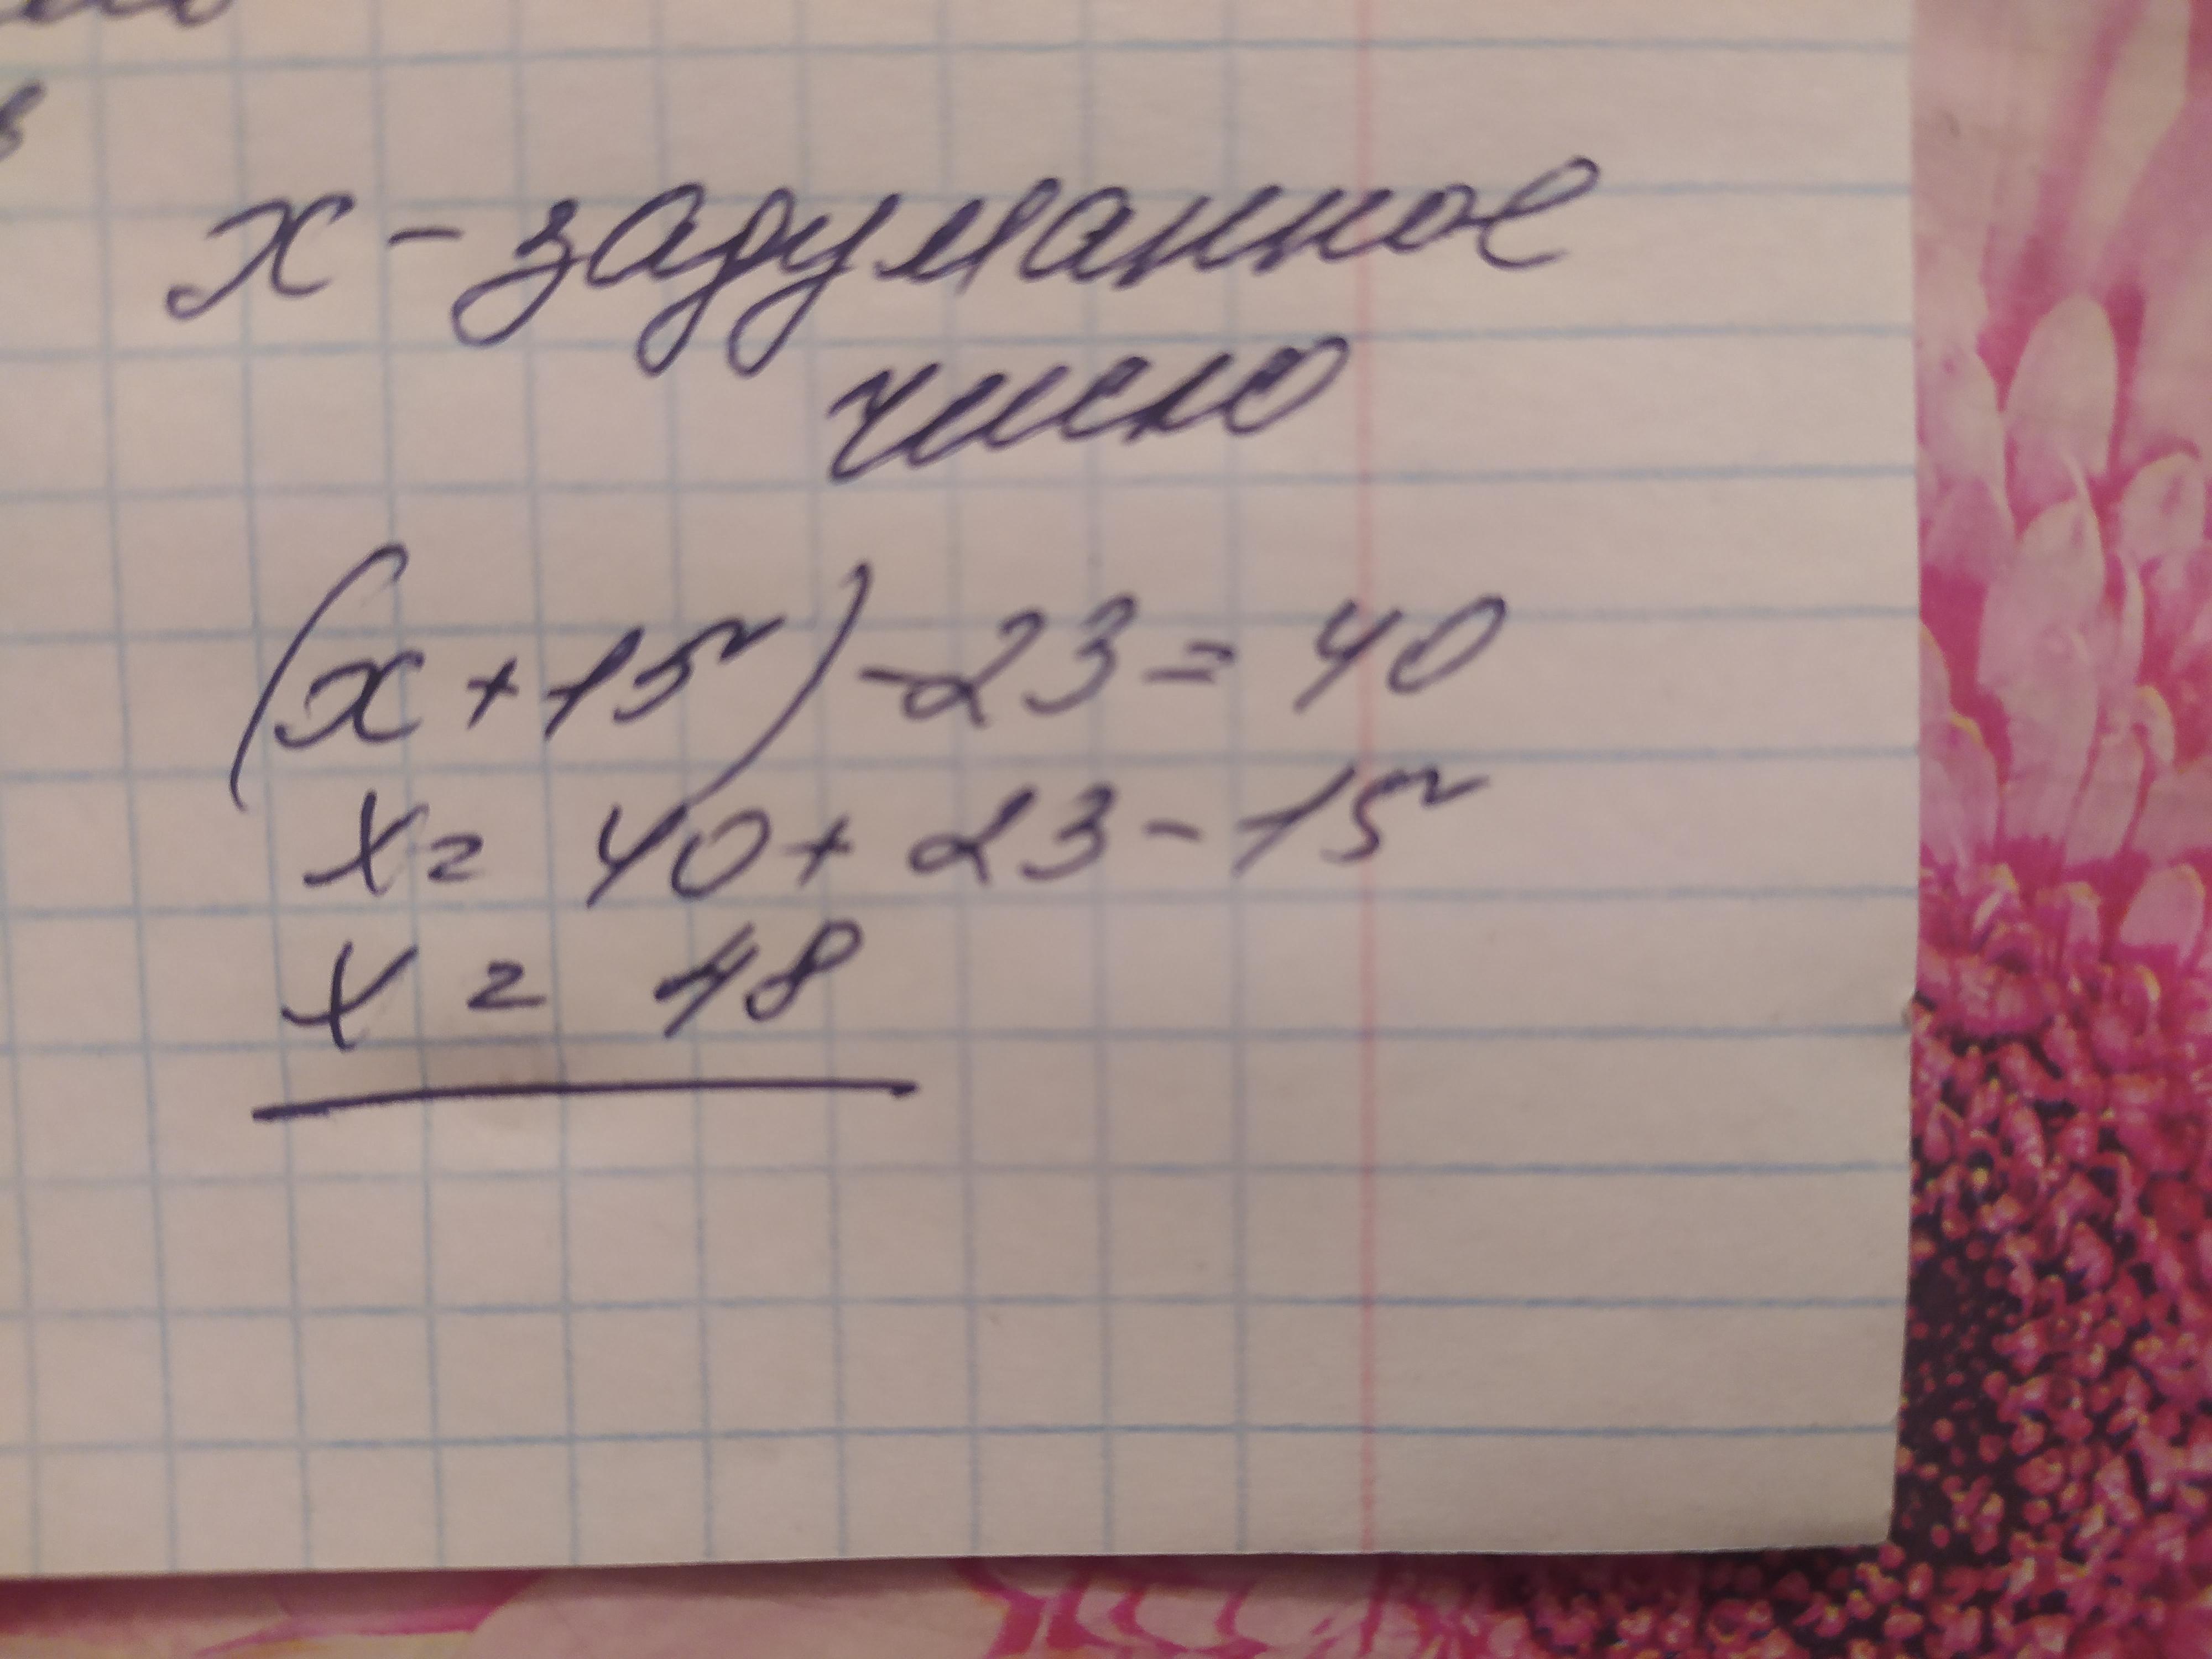 x - задуманное
число
(x + 15) - 23 = 40
x = 40 + 23 - 15
x = 48